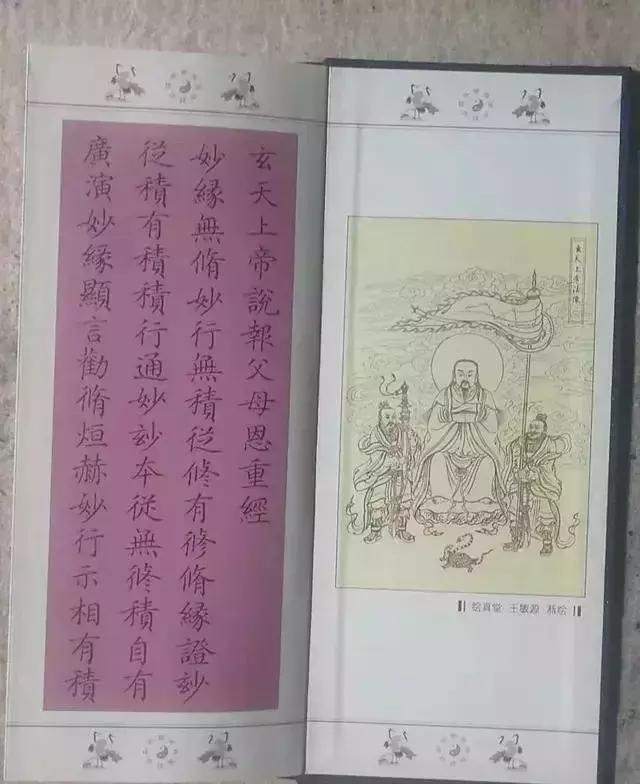 玄天上帝
绘真堂 王敏源 恭绘
玄天上帝說報父母恩重經
妙緣無脩妙行無積從修有修脩緣證玅
從積有積積行通妙玅本從無修積自有
廣演妙緣顯言勸脩烜赫妙行示相有積